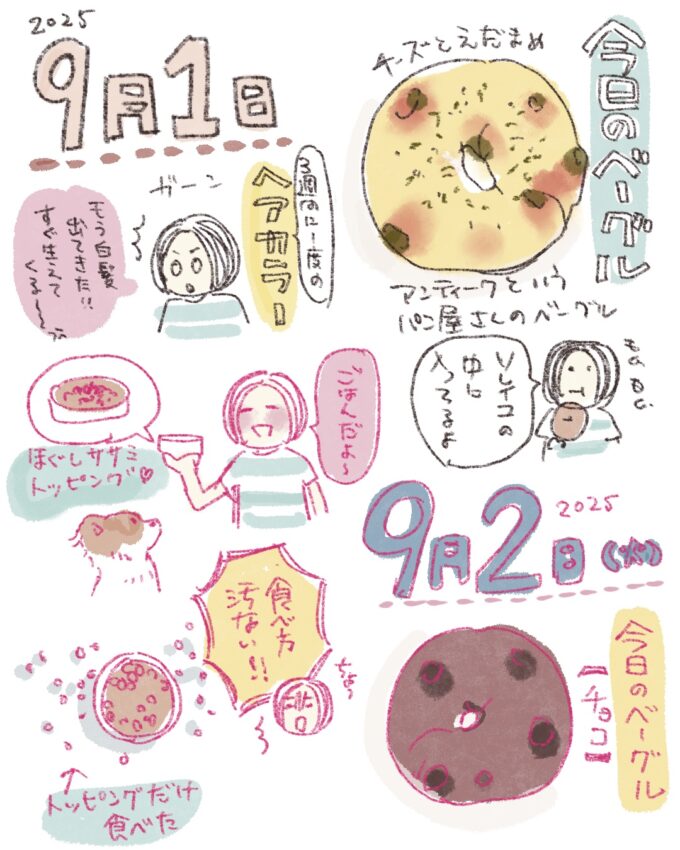 2025
9月1日
3週間に一度の
ヘアカラー
ガーン
もう白髪
出てきた!!
すぐ生えて
くる〜〜
ごはんだよ〜
ほぐしササミ
トッピング♡
食べ方
汚ない!!
トッピングだけ
食べた
今日のベーグル
チーズとえだまめ
アンティークという
パン屋さんのベーグル
中に
入ってるよ
2025
9月2日(火)
今日のベーグル
チョコ